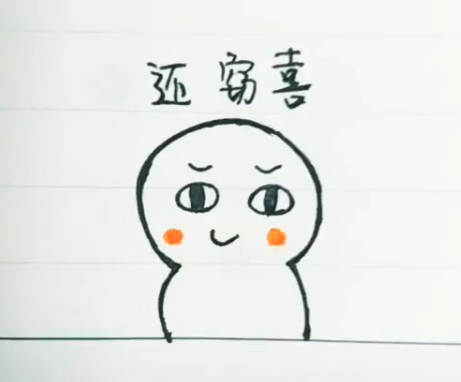 还窃喜